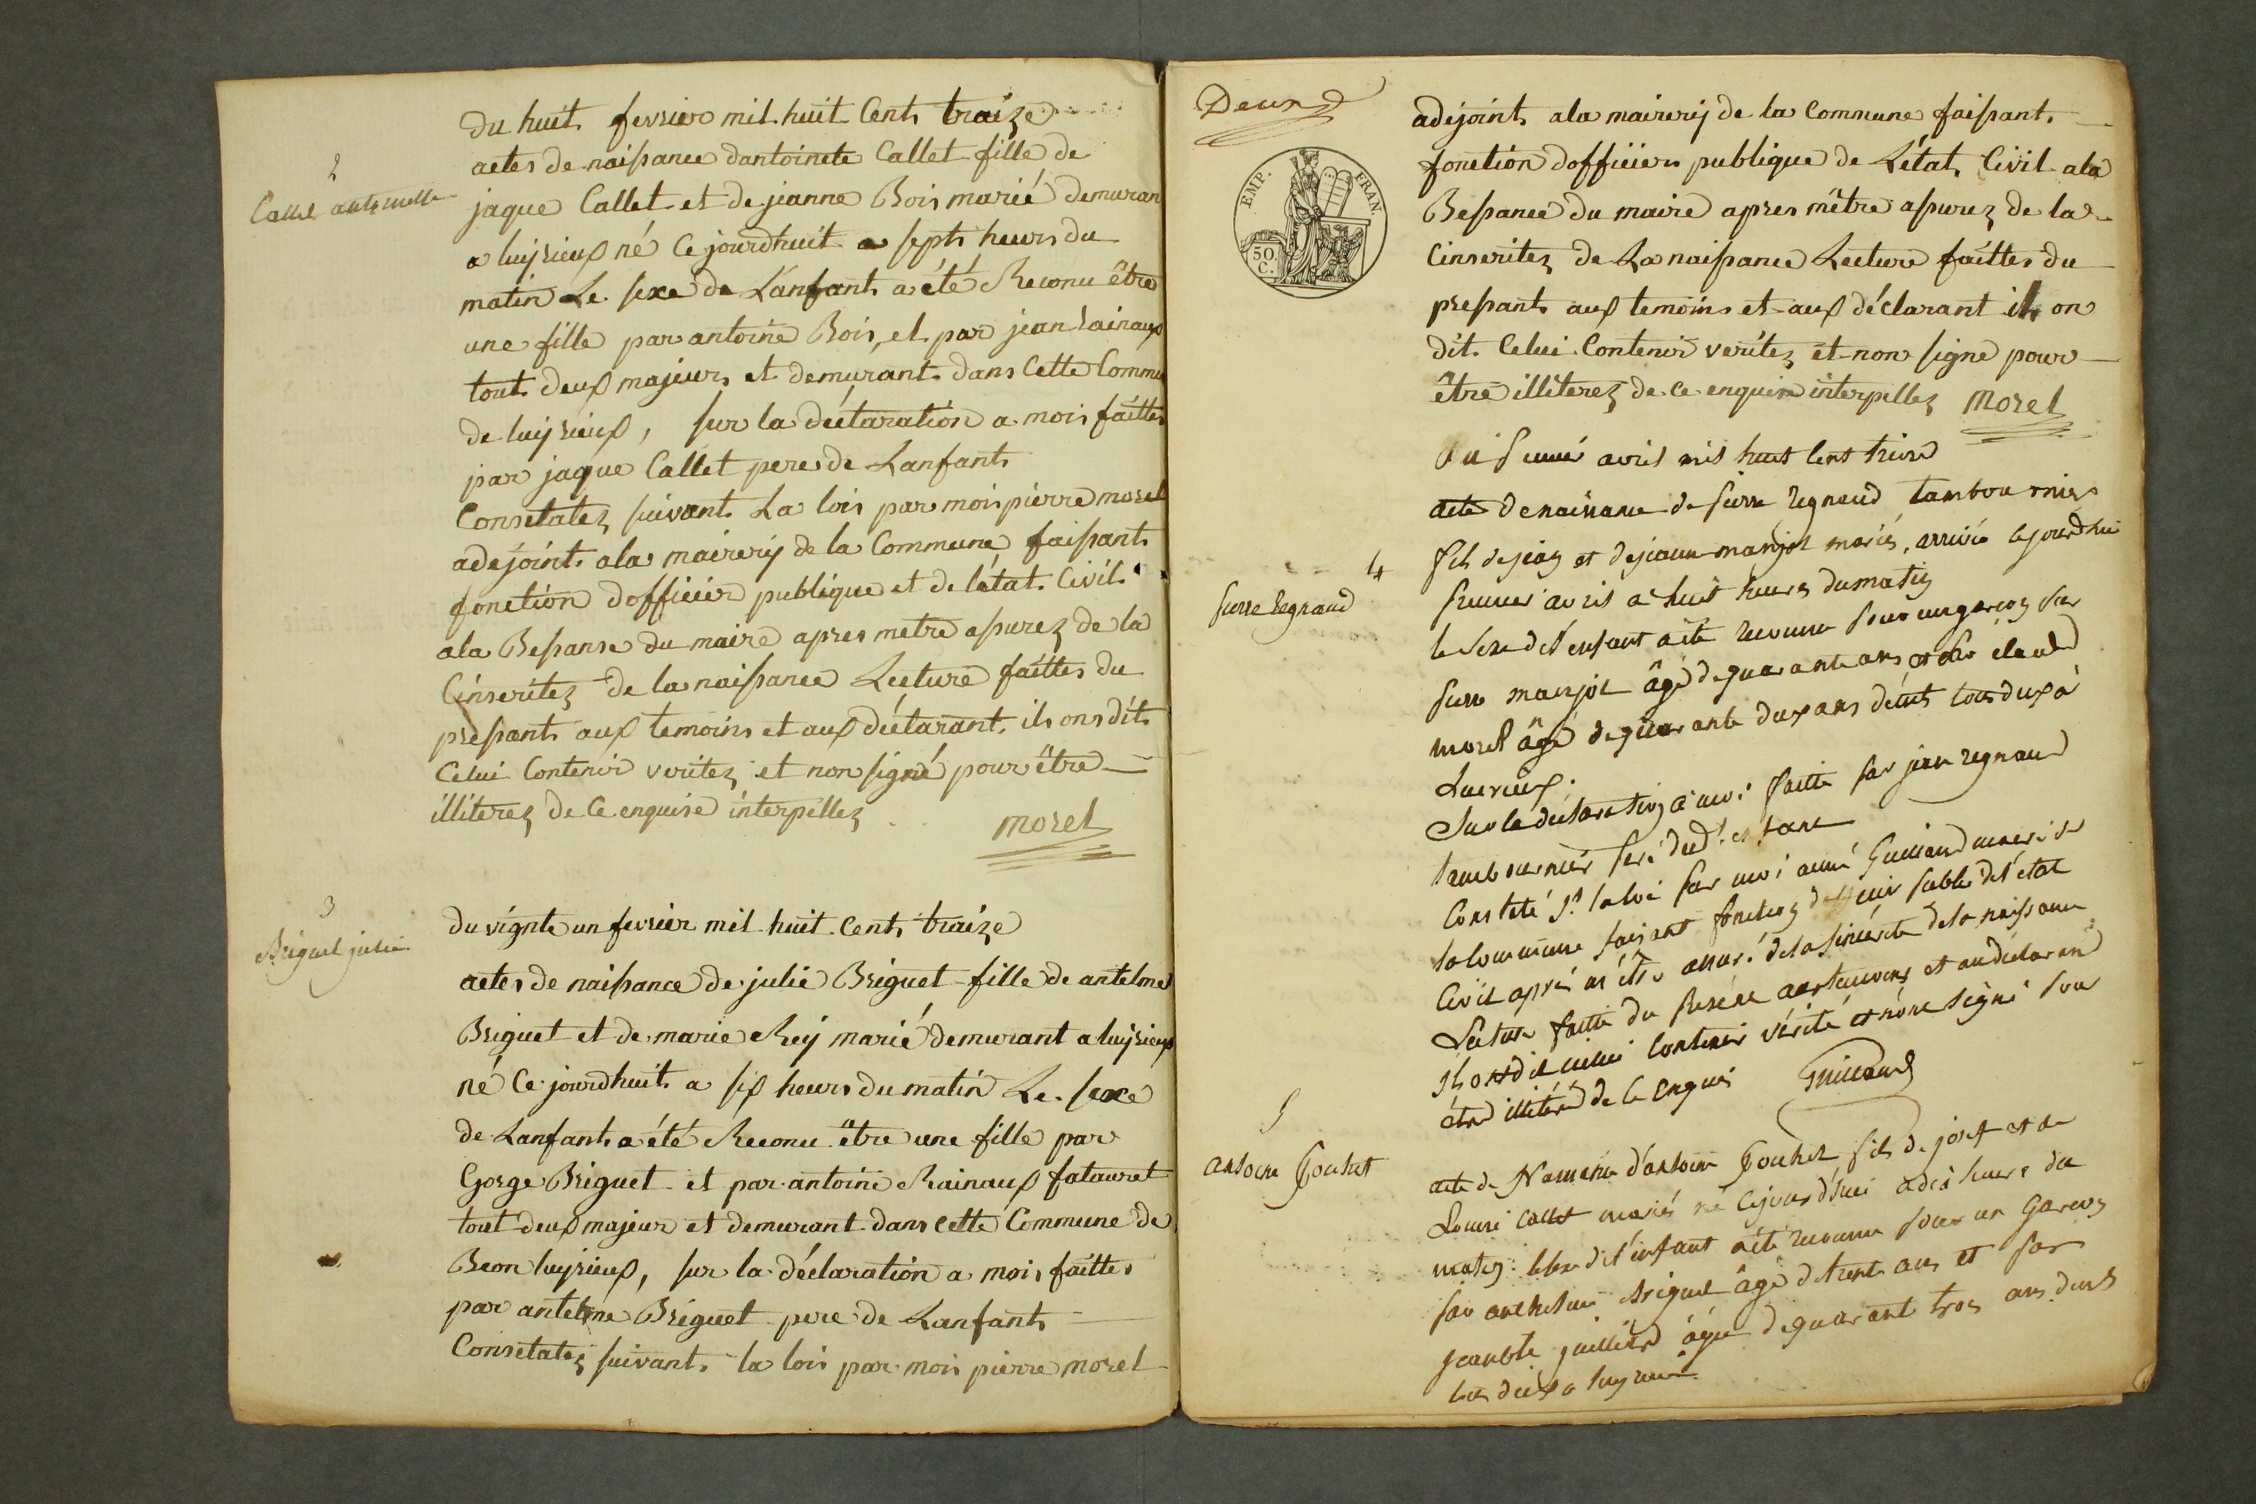 2
Callet antoinette
du huit fevrier mil huit Cents traize
actes de naissance dantoinete Callet fille de
jaque Callet et de jeanne Bois marié demuran
a luyrieux né Ce jourdhuit a septs heurs du
matin Le sexe de L'anfants a été Reconu être
une fille par antoine Bois, et par jean Rainaux
tout deux majeurs et demurants dans Cette Commu
de luyrieux, sur la déclaration a mois faittes
par jaque Callet pere de Lanfants
Consetatez suivants La lois par mois pierre morel
adejoints ala mairery de la Commune faissants
fonction dofficier publique et de l'état Civil
ala Bessanse du maire apres metre assurez de la
Cinseritez de la naissance Lecture faittes du
pressants aux temoins et aux déclarant ils ons dits
Celui Contenir veritez et non signé pour être
illiterez de Ce enquise interpellez
morel
3
Briguet julie
du vignte un fevrier mil huit Cents traize
actes de naissance de julie Briguet fille de antelme
Briguet et de marie Rey marié demurant a luyrieux
né Ce jourdhuit a six heurs du matin Le sexe
de Lanfants a été Reconu être une fille par
Gorge Briguet et par antoine Rainaux fatauret
tout deux majeur et demurant dans cette Commune de
Beon luyrieux, sur la déclaration a mois faittes
par antelme Briguet pere de Lanfants
Consetatez suivants la lois par mois pierre morel
Deux
EMP. FRAN.
50
C.
adejoints ala mairery de la Commune faissants
fonction dofficiers publique de L'état Civil ala
Bessance du maire apres mêtre assurez de la
Cinseritez de La naissance Lecture faittes du
pressants aux temoins et aux déclarant ils on
dit Celui Contenir veritez et non signe pour
être illiterez de Ce enquise interpellez morel
Du premié avril mil huit Cent treize
4
pierre Regnaud
acte de naissance de pierre Regnaud tambournier
fils de jean et de jeanne manjot mariés, arrivée cejourdhui
premier avril à huit heures du matin
le sexe de l'enfant a été reconnu pour un garçon par
pierre manjot âgé de quarante ans et par claude
morel âgé de quarante deux ans demt tous deux à
Luirieux.
Sur la déclaration à moi faitte par jean regnaud
tambournier peré dudt enfant
Constaté st la loi par moi aimé Guillaud maire de
la commune faisant fonction d'officier public de l'état
Civil après m'être assuré de la sincérité de la naissance
Lecture faitte du présent aux temoins et au déclarant
ils ont dit celui contenir vérité et nont signé pour
être illitéré de ce enquis Guillaud
5
antoine Pouhet
acte de Naissance d'antoine Pouhet fils de josef et de
Louise Callet mariés né cejourd'hui a dix heures du
matin le sexe de l'enfant a été reconnu pour un garçon
par anthelme Briguet âgé de trente ans et par
âgé de quarante trois ans demt
tous deux a luyrieux